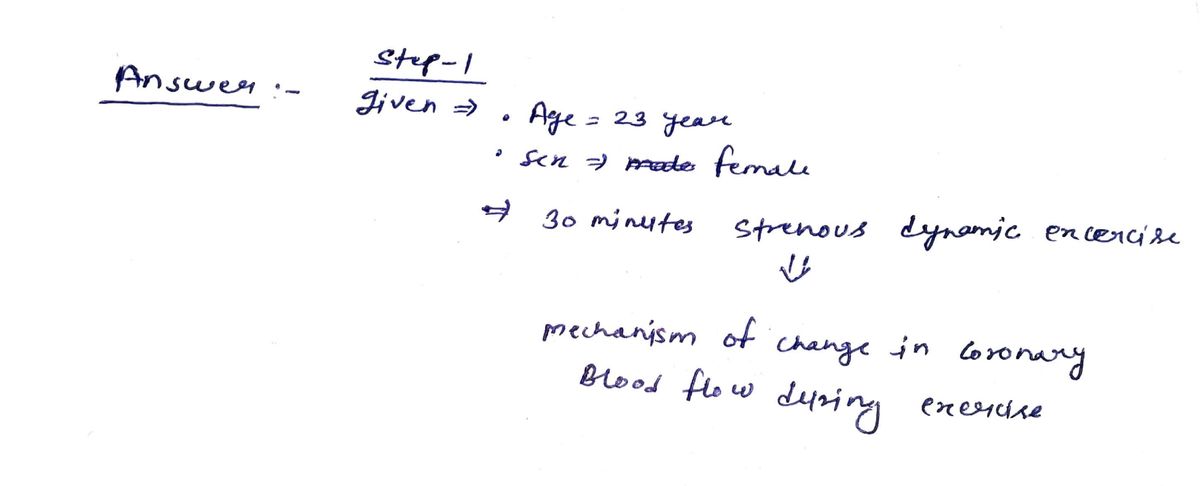 Answer :-
Step-1
given ⇒ • Age = 23 year
• Sex ⇒ male female
⇒ 30 minutes strenous dynamic excercise
⇓
mechanism of change in coronary
Blood flow during exercise